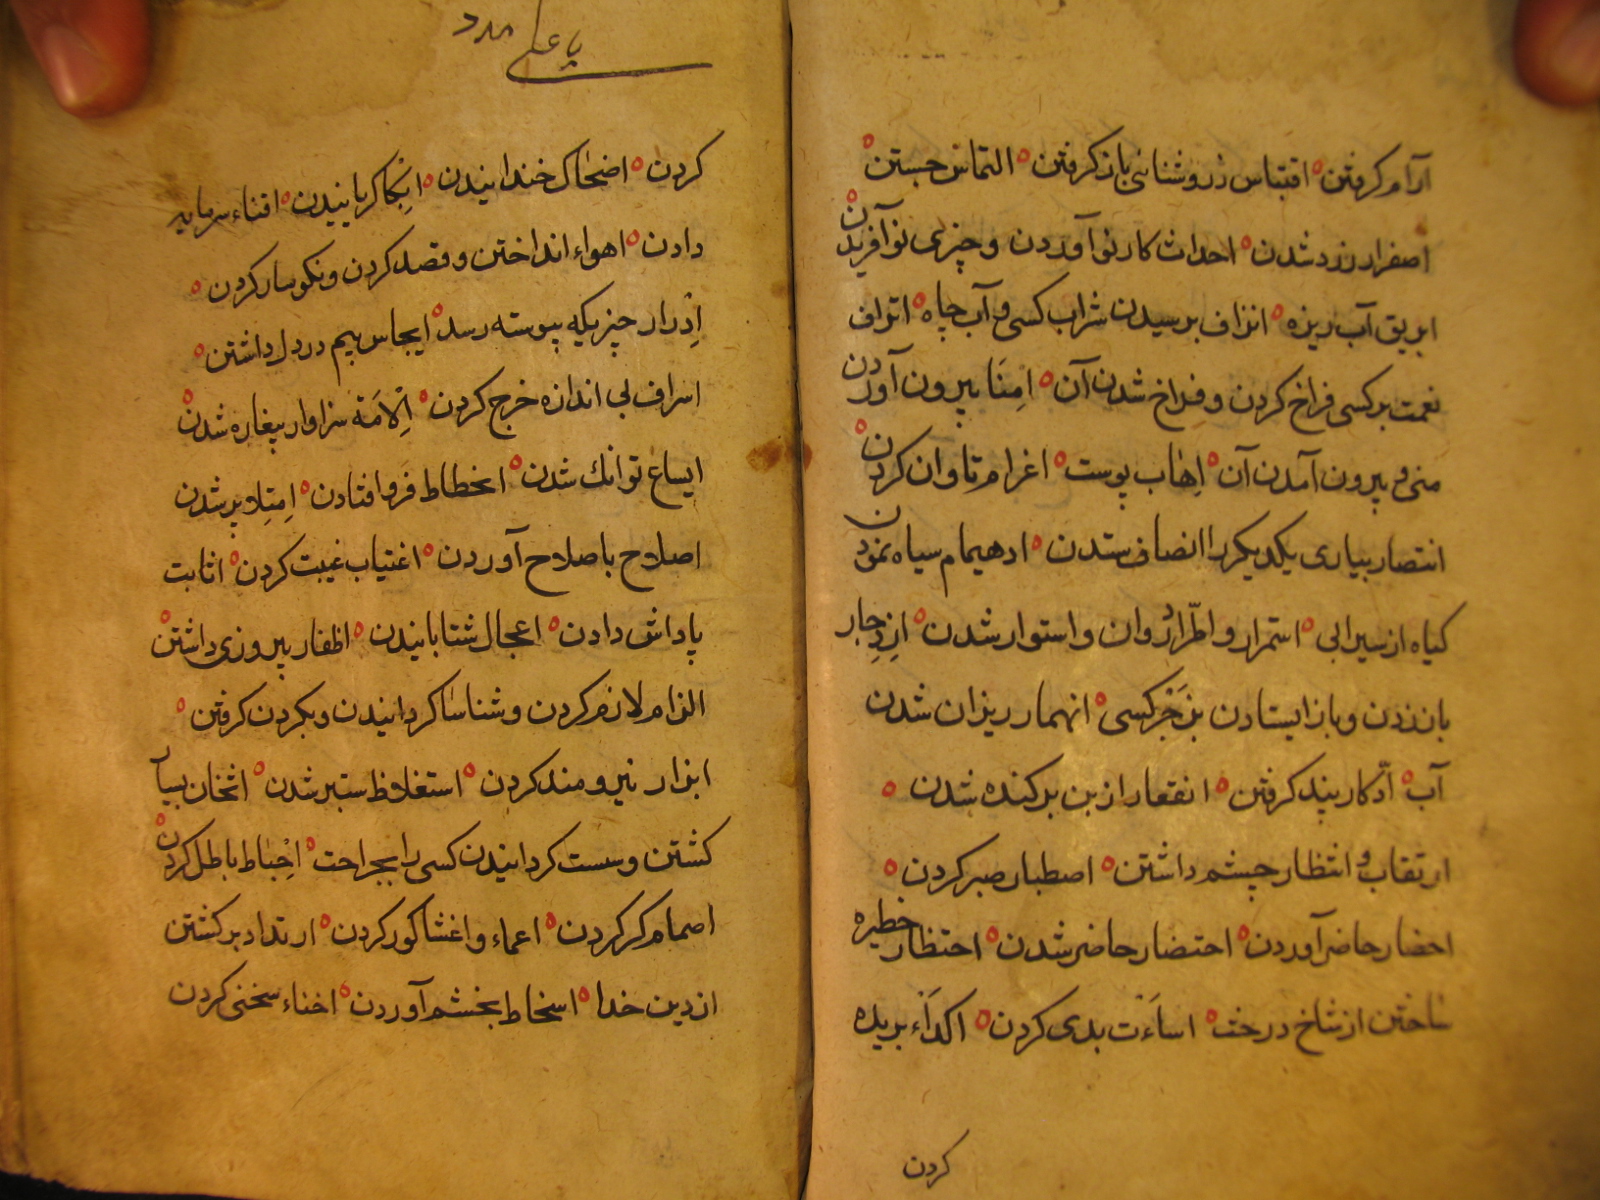 آرام کرفتن ه اقتباس ذروشنائی باز کرفتن ه التماس جستن ه
اصفرار زرد شدن ه احداث کار نو آوردن و چیزی نو آفریدن ه
ابریق آب ریزه ه انزاف برسیدن شراب کسی و آب چاه ه اتراف
نعمت بر کسی فراخ کردن و فراخ شدن آن ه امنا بیرون آوردن
منی و بیرون آمدن آن ه اهاب پوست ه اغرام تاوان کردن ه
انتصار بیاری یکدیکر را انصاف ستدن ه ادهیمام سیاه نمودن
کیاه از سیرابی ه استمرار و اطّراد روان و استوار شدن ه ازدجار
باز زدن و باز ایستادن بزجر کسی ه انهمار ریزان شدن
آب ه ادّکار پند کرفتن ه انقعار از بن برکنده شدن ه
ارتقاب و انتظار چشم داشتن ه اصطبار صبر کردن ه
احضار حاضر آوردن ه احتضار حاضر شدن ه احتظار خطیره
ساختن از شاخ درخت ه اساءت بدی کردن ه اکداء بریده
کردن
یا علی مدد
کردن ه اضحاک خندانیدن ه ابکا کریانیدن ه اقناء سرمایه
دادن ه اهواء انداختن و قصد کردن و نکوسار کردن ه
ادرار چیزیکه پیوسته رسد ه ایجاس بیم در دل داشتن ه
اسراف بی اندازه خرج کردن ه الامة سزاوار پیغاره شدن ه
ایساع توانك شدن ه انحطاط فرو افتادن ه امتلا پر شدن
اصلاح باصلاح آوردن ه اغتیاب غیبت کردن ه اثابت
پاداش دادن ه اعجال شتابانیدن ه اظفار پیروزی داشتن ه
الزام لازم کردن و شناسا کردانیدن و بکردن کرفتن ه
ابزار نیرومند کردن ه استغلاظ ستبر شدن ه اثخان بسیار
کشتن و سست کردانیدن کسی را بجراحت ه احباط باطل کردن ه
اصمام کر کردن ه اعماء و اغشا کور کردن ه ارتداد برکشتن
از دین خدا ه اسخاط بخشم آوردن ه اخناء سخنی کردن